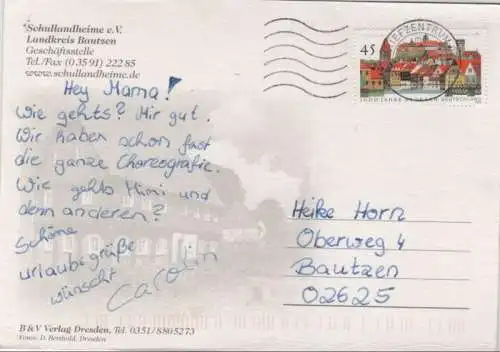 Schullandheime e.V.
Landkreis Bautzen
Geschäftsstelle
Tel./Fax (0 35 91) 222 85
www.schullandheime.de
45
BRIEFZENTRUM
1000 JAHRE BAUTZEN DEUTSCHLAND
Hey Mama!
Wie gehts? Mir gut.
Wir haben schon fast
die ganze Choreografie.
Wie gehts Mimi und
den anderen?
Schöne
urlaubsgrüße
wünscht
Carolin
Heike Horn
Oberweg 4
Bautzen
02625
B & V Verlag Dresden, Tel. 03 51/8 80 52 73
Fotos: D. Berthold, Dresden